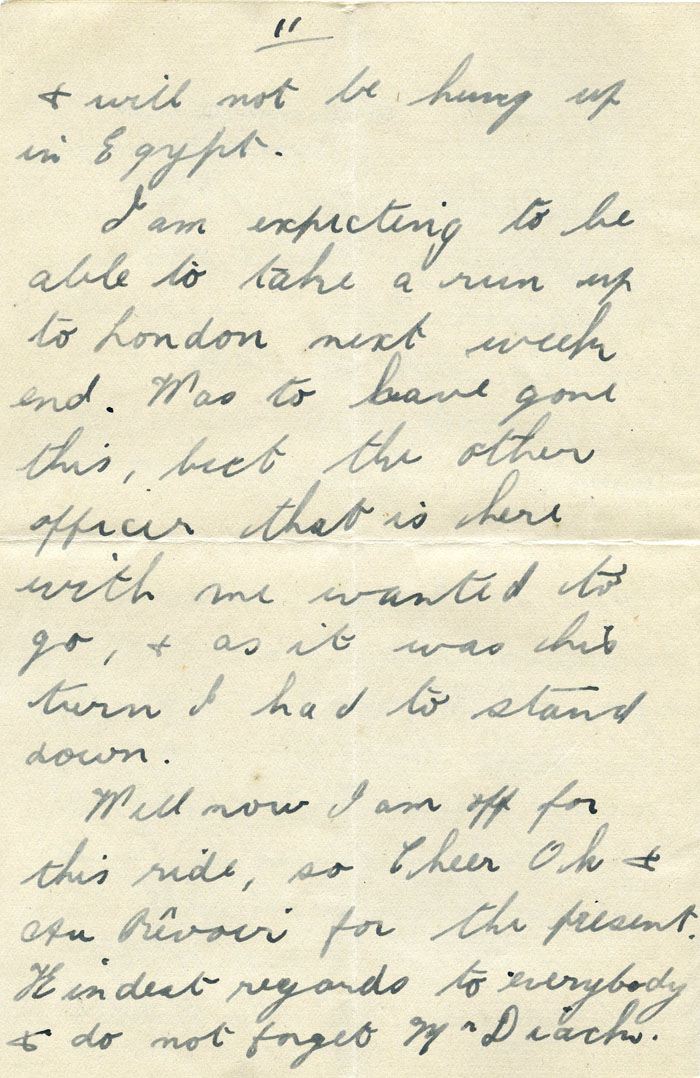 11
& will not be hung up
in Egypt.
I am expecting to be
able to take a run up
to London next week
end. Was to have gone
this, but the other
officer that is here
with me wanted to
go, & as it was his
turn I had to stand
down.
Well now I am off for
this ride, so Cheer Oh &
Au Rêvoir for the present.
Kindest regards to everybody
& do not forget Mr Diack.